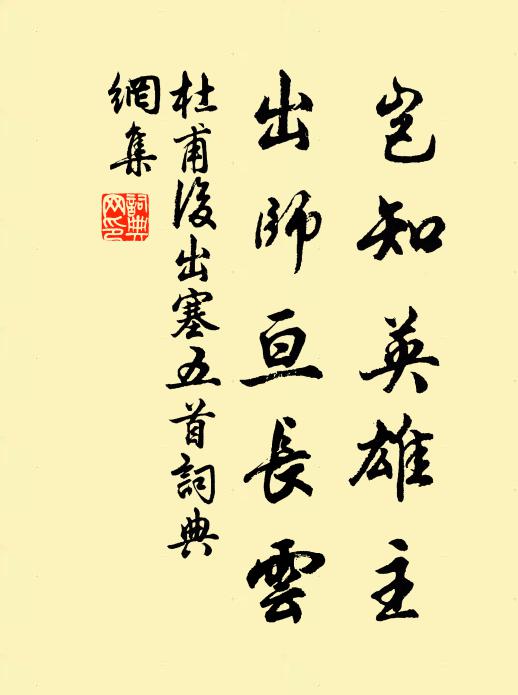 豈知英雄主
出師亘長雲
杜甫後出塞五首詞典
網集
詞典
网印